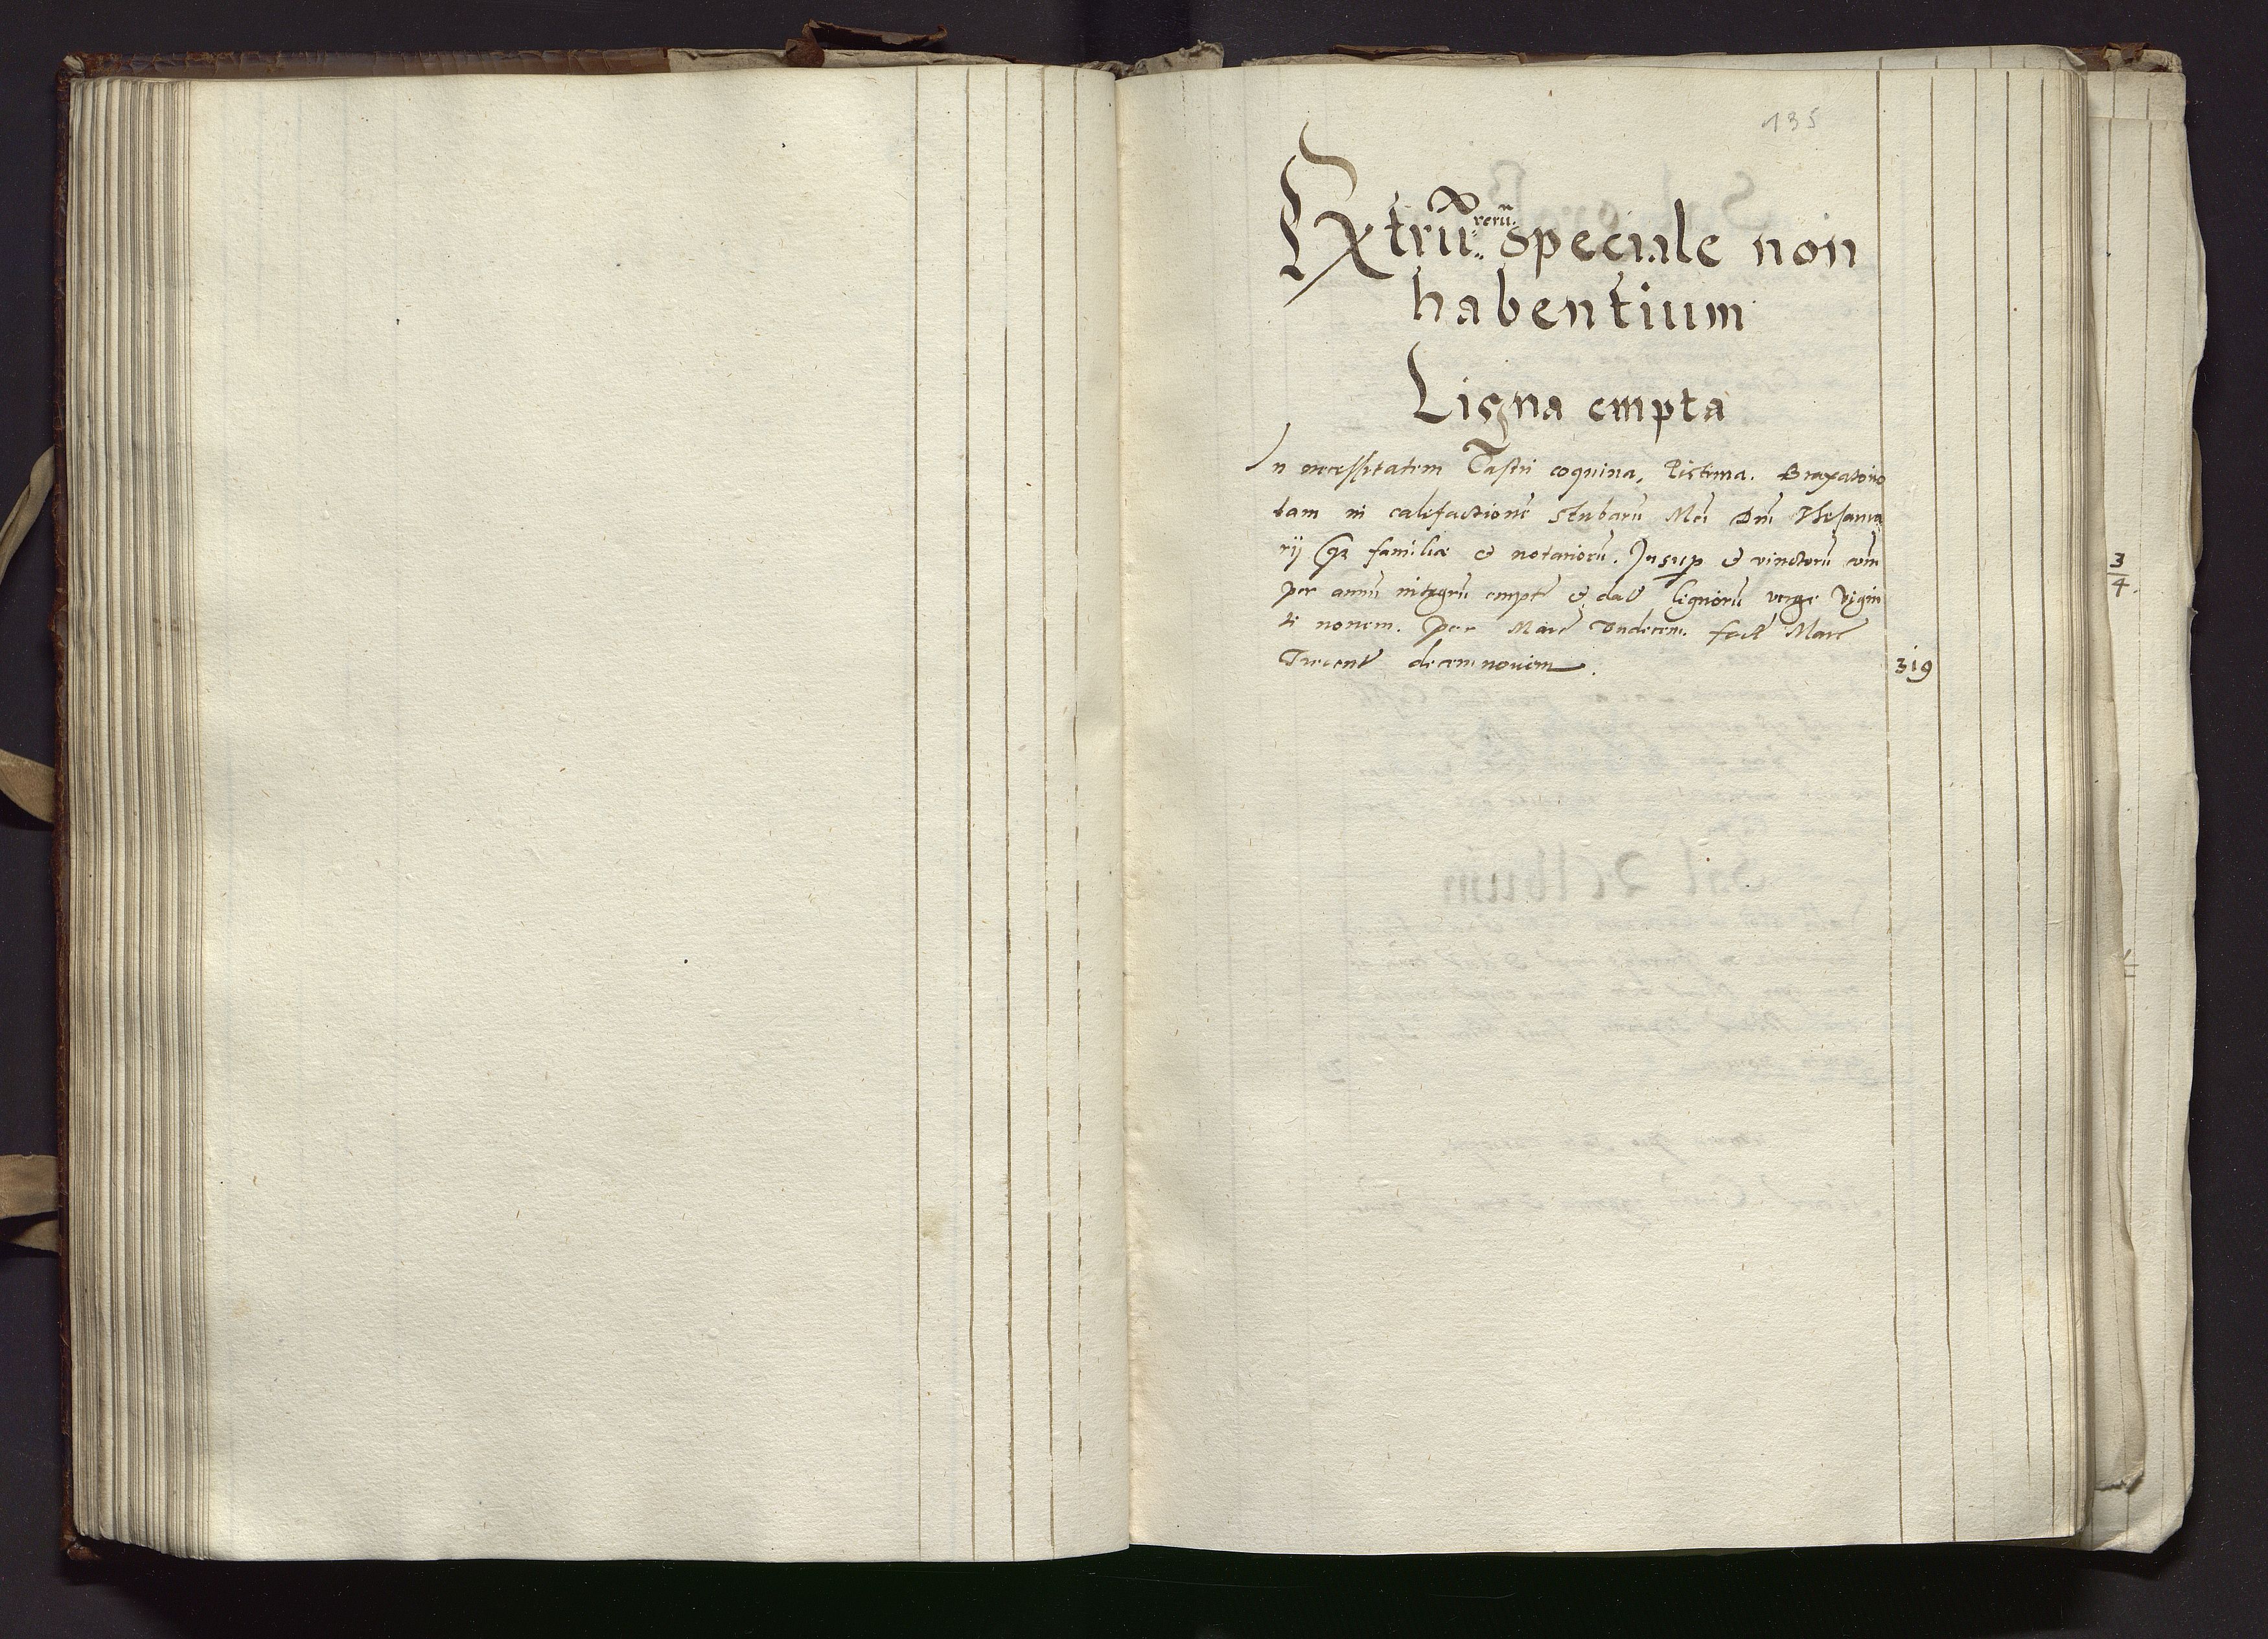 135
Extrũ rerũ speciale non
habentium
Ligna empta
In necessitatem Castri coquina, Pistrina. Braxatorio
tam in calefactionẽ stubarũ Mci Dni Thesaura
rij familiæ et notariorũ. Insup et vinctorũ
per annũ integrũ empt et dat lignorũ virge Vigin
ti novem. per Marc Vndecem. facit Marc
Trecent decem novem.
319
3/4